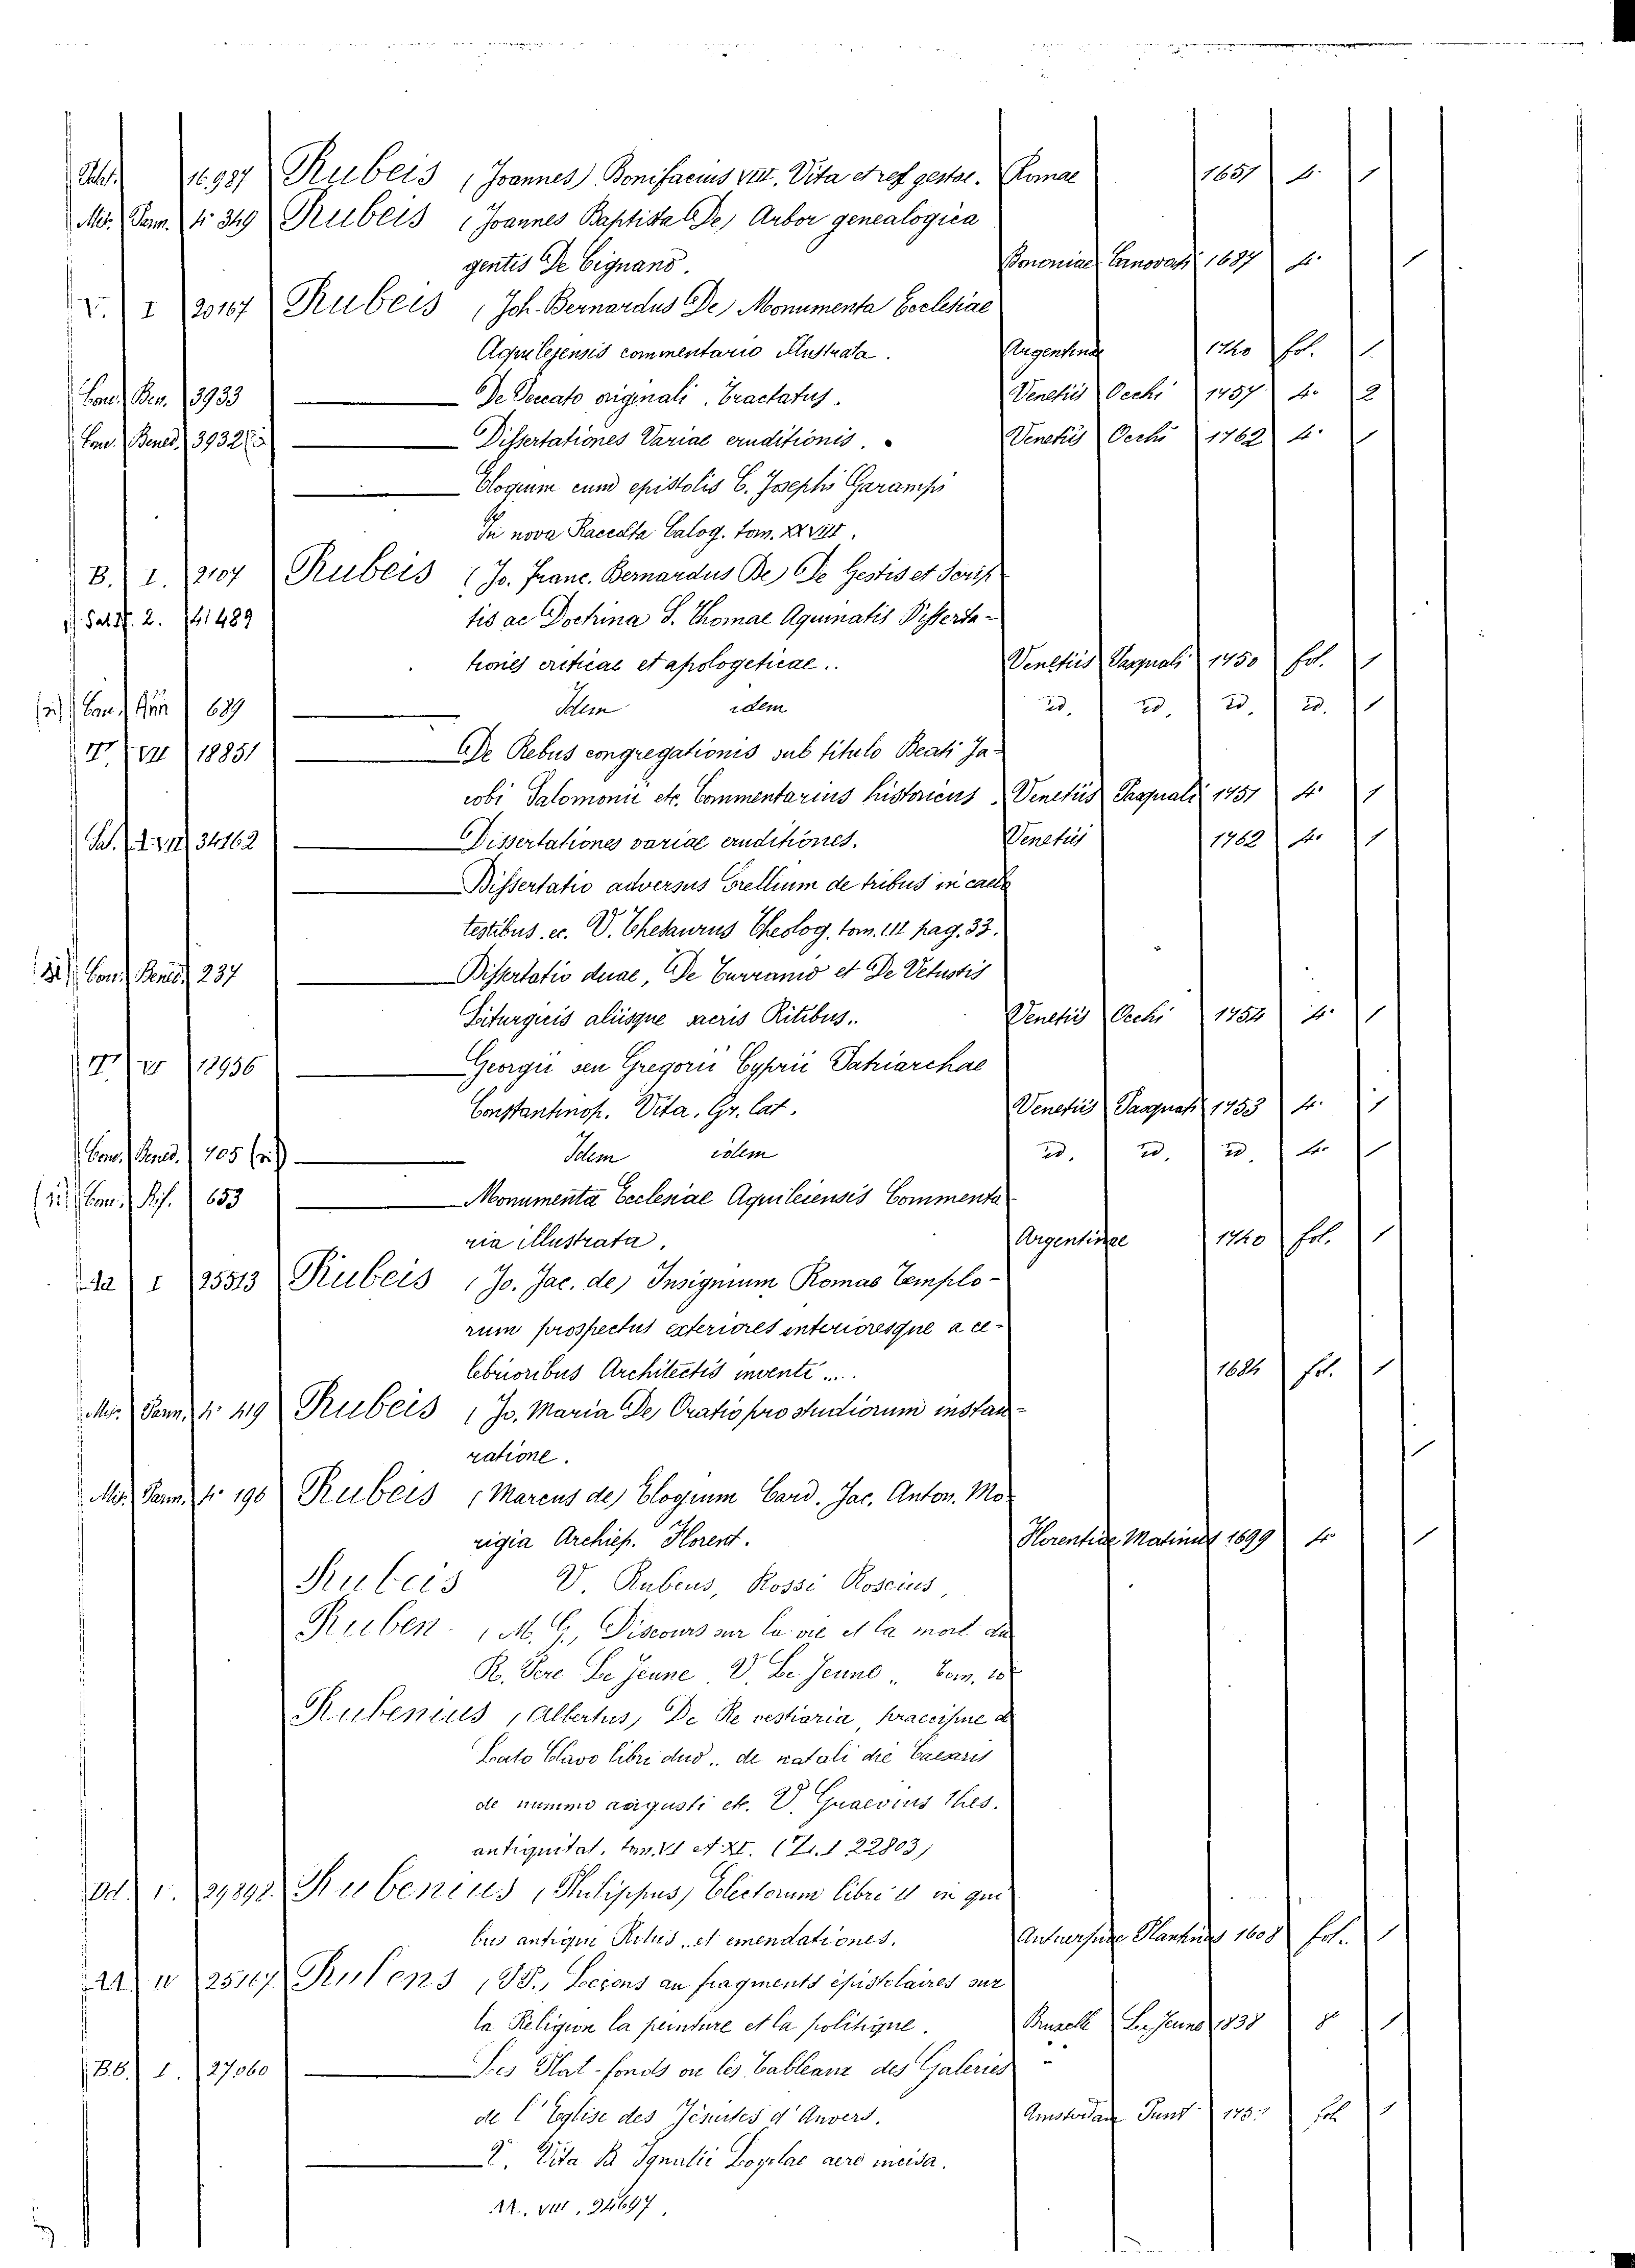 16987 Rubeis (Joannes) Bonifacius VIII. Vita et res gestae. Romae 1651 4. 1
Mis. Pann. 4. 349 Rubeis (Joannes Baptista De) Arbor genealogica
gentis De Cignano. Bononiae 1687 4. 1
V. I 20167 Rubeis (Joh. Bernardus De) Monumenta Ecclesiae
Aquilejensis commentario Illustrata. Argentinae 1740 fol. 1
Con. Ben. 3933 De Peccato originali. Tractatus. Venetiis Occhi 1757 4. 2
Con. Bened. 3932 Dissertationes Variae eruditionis. Venetiis Occhi 1762 4. 1
Elogium cum epistolis C. Josephi Garampi
In nova Raccolta Calog. tom. XXVIII.
B. I. 2107 Rubeis (Jo. Franc. Bernardus De) De Gestis et Scrip
2. 41489 tis ac Doctrina S. Thomae Aquinatis Disserta-
tiones criticae et apologeticae.. Venetiis Pasquali 1750 fol. 1
Con. 689 Idem idem id. id. id. id. 1
VII 18851 De Rebus congregationis sub titulo Beati Ja-
cobi Salomonii etc. Commentarius historicus. Venetiis Pasquali 1751 4. 1
34162 Dissertationes variae eruditiones. Venetiis 1762 4. 1
Dissertatio adversus Crellium de tribus in caelo
testibus. ec. V. Thesaurus Theolog. tom. III pag. 33.
Con. Bened. 237 Dissertatio duae, De Turranio et De Vetustis
Liturgicis aliisque sacris Ritibus. Venetiis Occhi 1754 4. 1
12956 Georgii seu Gregorii Cyprii Patriarchae
Constantinop. Vita. Gr. lat. Venetiis Pasquali 1753 4. 1
Con. Bened. 705 Idem idem id. id. id. 4. 1
Con. 653 Monumenta Ecclesiae Aquileiensis Commenta
ria illustrata. Argentinae 1740 fol. 1
I 25513 Rubeis (Jo. Jac. de) Insignium Romae Templo-
rum prospectus exteriores interioresque a ce-
lebrioribus Architectis inventi .... 1684 fol. 1
Mis. Pann. 4. 419 Rubeis (Jo. Maria De) Oratio pro studiorum instau-
ratione. 1
Mis. Pann. 4. 190 Rubeis (Marcus de) Elogium Card. Jac. Anton. Mo-
rigia Archiep. Florent. Florentiae 1699 4. 1
Rubeis V. Rubeus, Rossi Roscius,
Ruben (M. G.) Discours sur la vie et la mort du
R. Pere Le Jeune. V. Le Jeune. tom. 10
Rubenius (Albertus) De Re vestiaria, praecipue de
Lato Clavo libri duo. de natali die Caesaris
de nummo augusti etc. V. Graevius Thes.
antiquitat. tom. VI et XI. (Z. I 22803)
29892 Rubenius (Philippus) Electorum libri II in qui
bus antiqui Ritus. et emendationes. Plantinus 1608 fol. 1
Rubens (PP.) Leçons au fragments épistolaires sur
la Religion la peinture et la politique. Le Jeune 1838 8 1
BB. I. 27060 Les Plat-fonds ou les Tableaux des Galeries
de l'Eglise des Jésuites d'Anvers. Amsterdam Punt fol 1
V. Vita B Ignatii Loyolae aere incisa.
VIII. 24697.